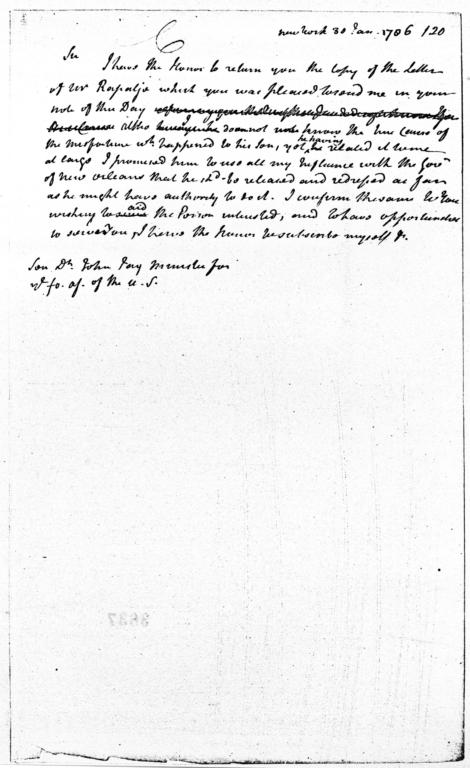 New York 30 Jan. 1786 120
Sir
I have the Honor to return you the Copy of the Letter
of Mr Rapalje which you was pleased to send me in your
note of this Day
altho does not know the true Causes of
the Misfortune wch happened to his Son, yet, he having related it to me
at large I promised him to use all my Influence with the Govr
of New Orleans that he shd be released and redressed as far
as he might have authority to do it. I confirm the same to you
wishing to and the Person interested, and to have opportunities
to serve you I have the Honor to subscribe myself &.
Son Dn John Jay Minister for
ye fo. af. of the U.S.
3637